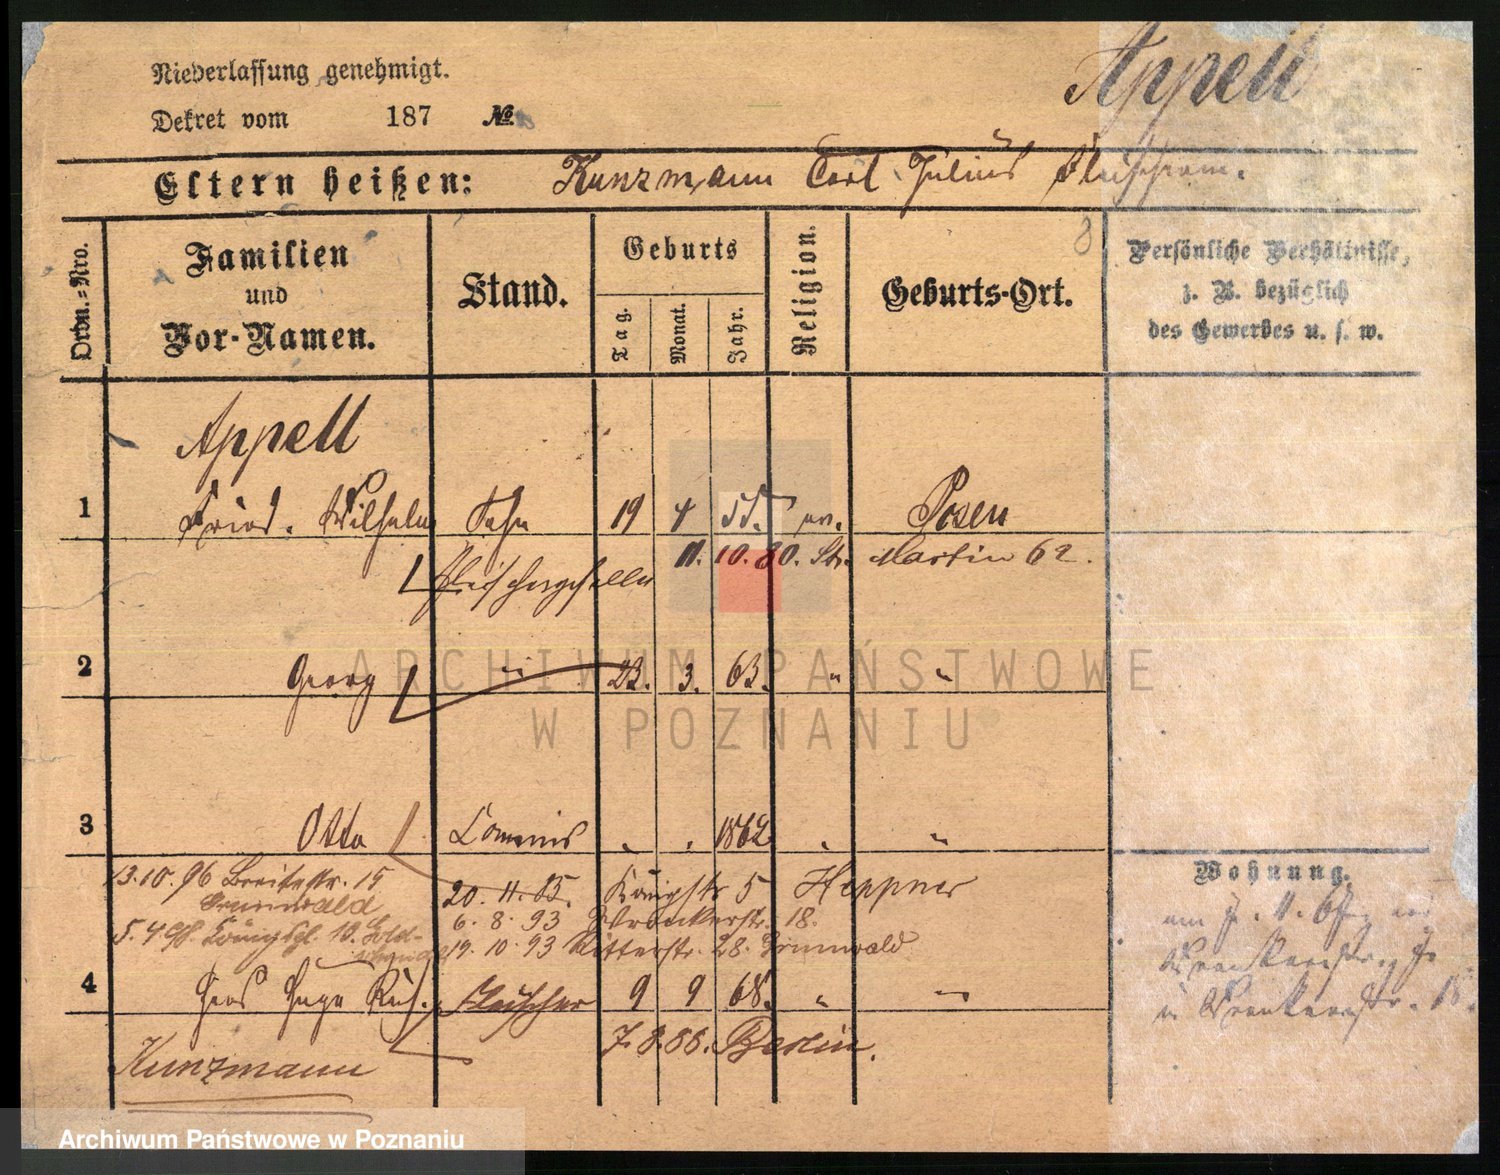 Niederlassung genehmigt.
Appell
Dekret vom 187 No.
Eltern heißen: Kunzmann Carl Julius
8
Ordn.=Nro. Familien und Vor-Namen. Stand. Geburts Tag. Monat. Jahr. Religion. Geburts-Ort. Persönliche Verhältnisse, z. B. bezüglich des Gewerbes u. s. w.
Appell
1 Fried. Wilhelm Sohn 19 4 55. ev. Posen
Fleischergeselle 11. 10. 80. St. Martin 62.
2 Georg " 23. 3. 63. " "
ARCHIWUM PAŃSTWOWE
W POZNANIU
3 Otto Commis " " 1862 " "
Wohnung.
13.10.96 Breitestr. 15 20. 11. 85. Königstr 5 Heppner
Grunwald 6. 8. 93 18.
5. 4. Königspl. 10. 19. 10. 93 Ritterstr. 28. Grunwald
4 Hugo Fleischer 9 9 68. " "
7. 8. 86. Berlin.
Kunzmann
Archiwum Państwowe w Poznaniu